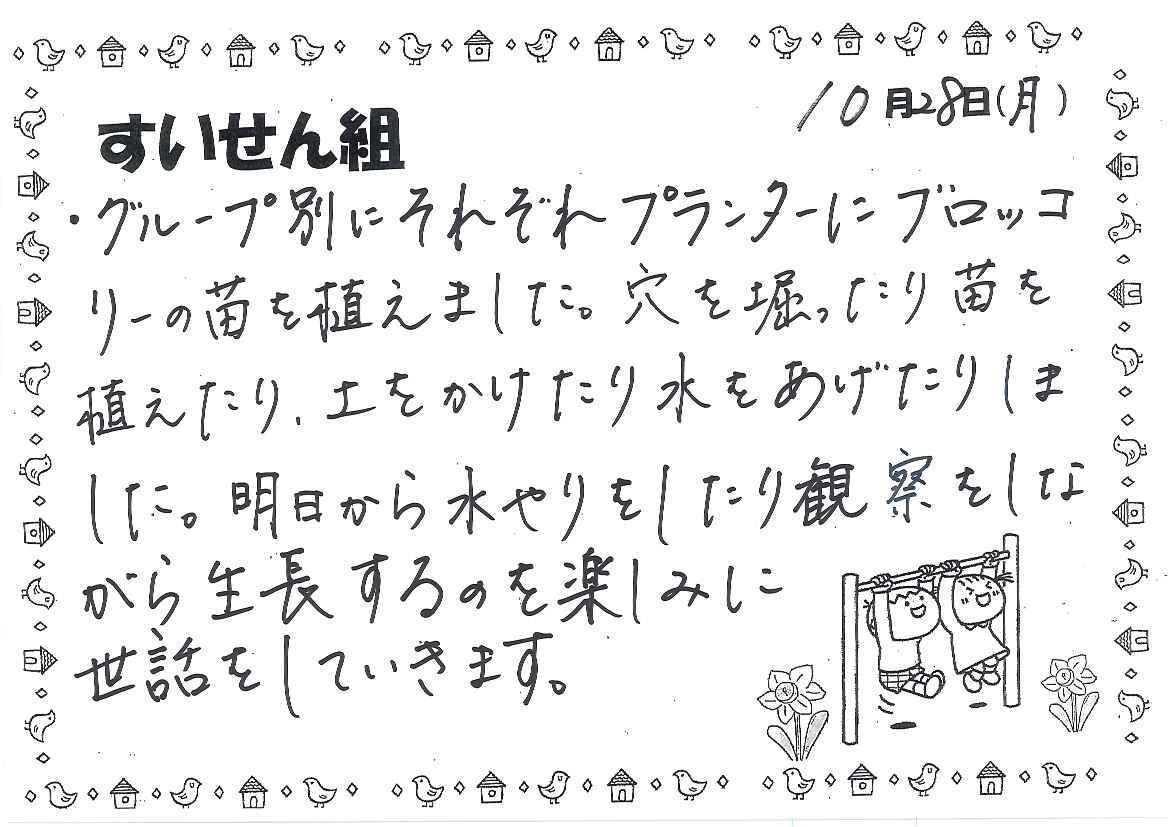 10月28日(月)
すいせん組
・グループ別にそれぞれプランターにブロッコ
リーの苗を植えました。穴を堀ったり苗を
植えたり、土をかけたり水をあげたりしま
した。明日から水やりをしたり観察をしな
がら生長するのを楽しみに
世話をしていきます。